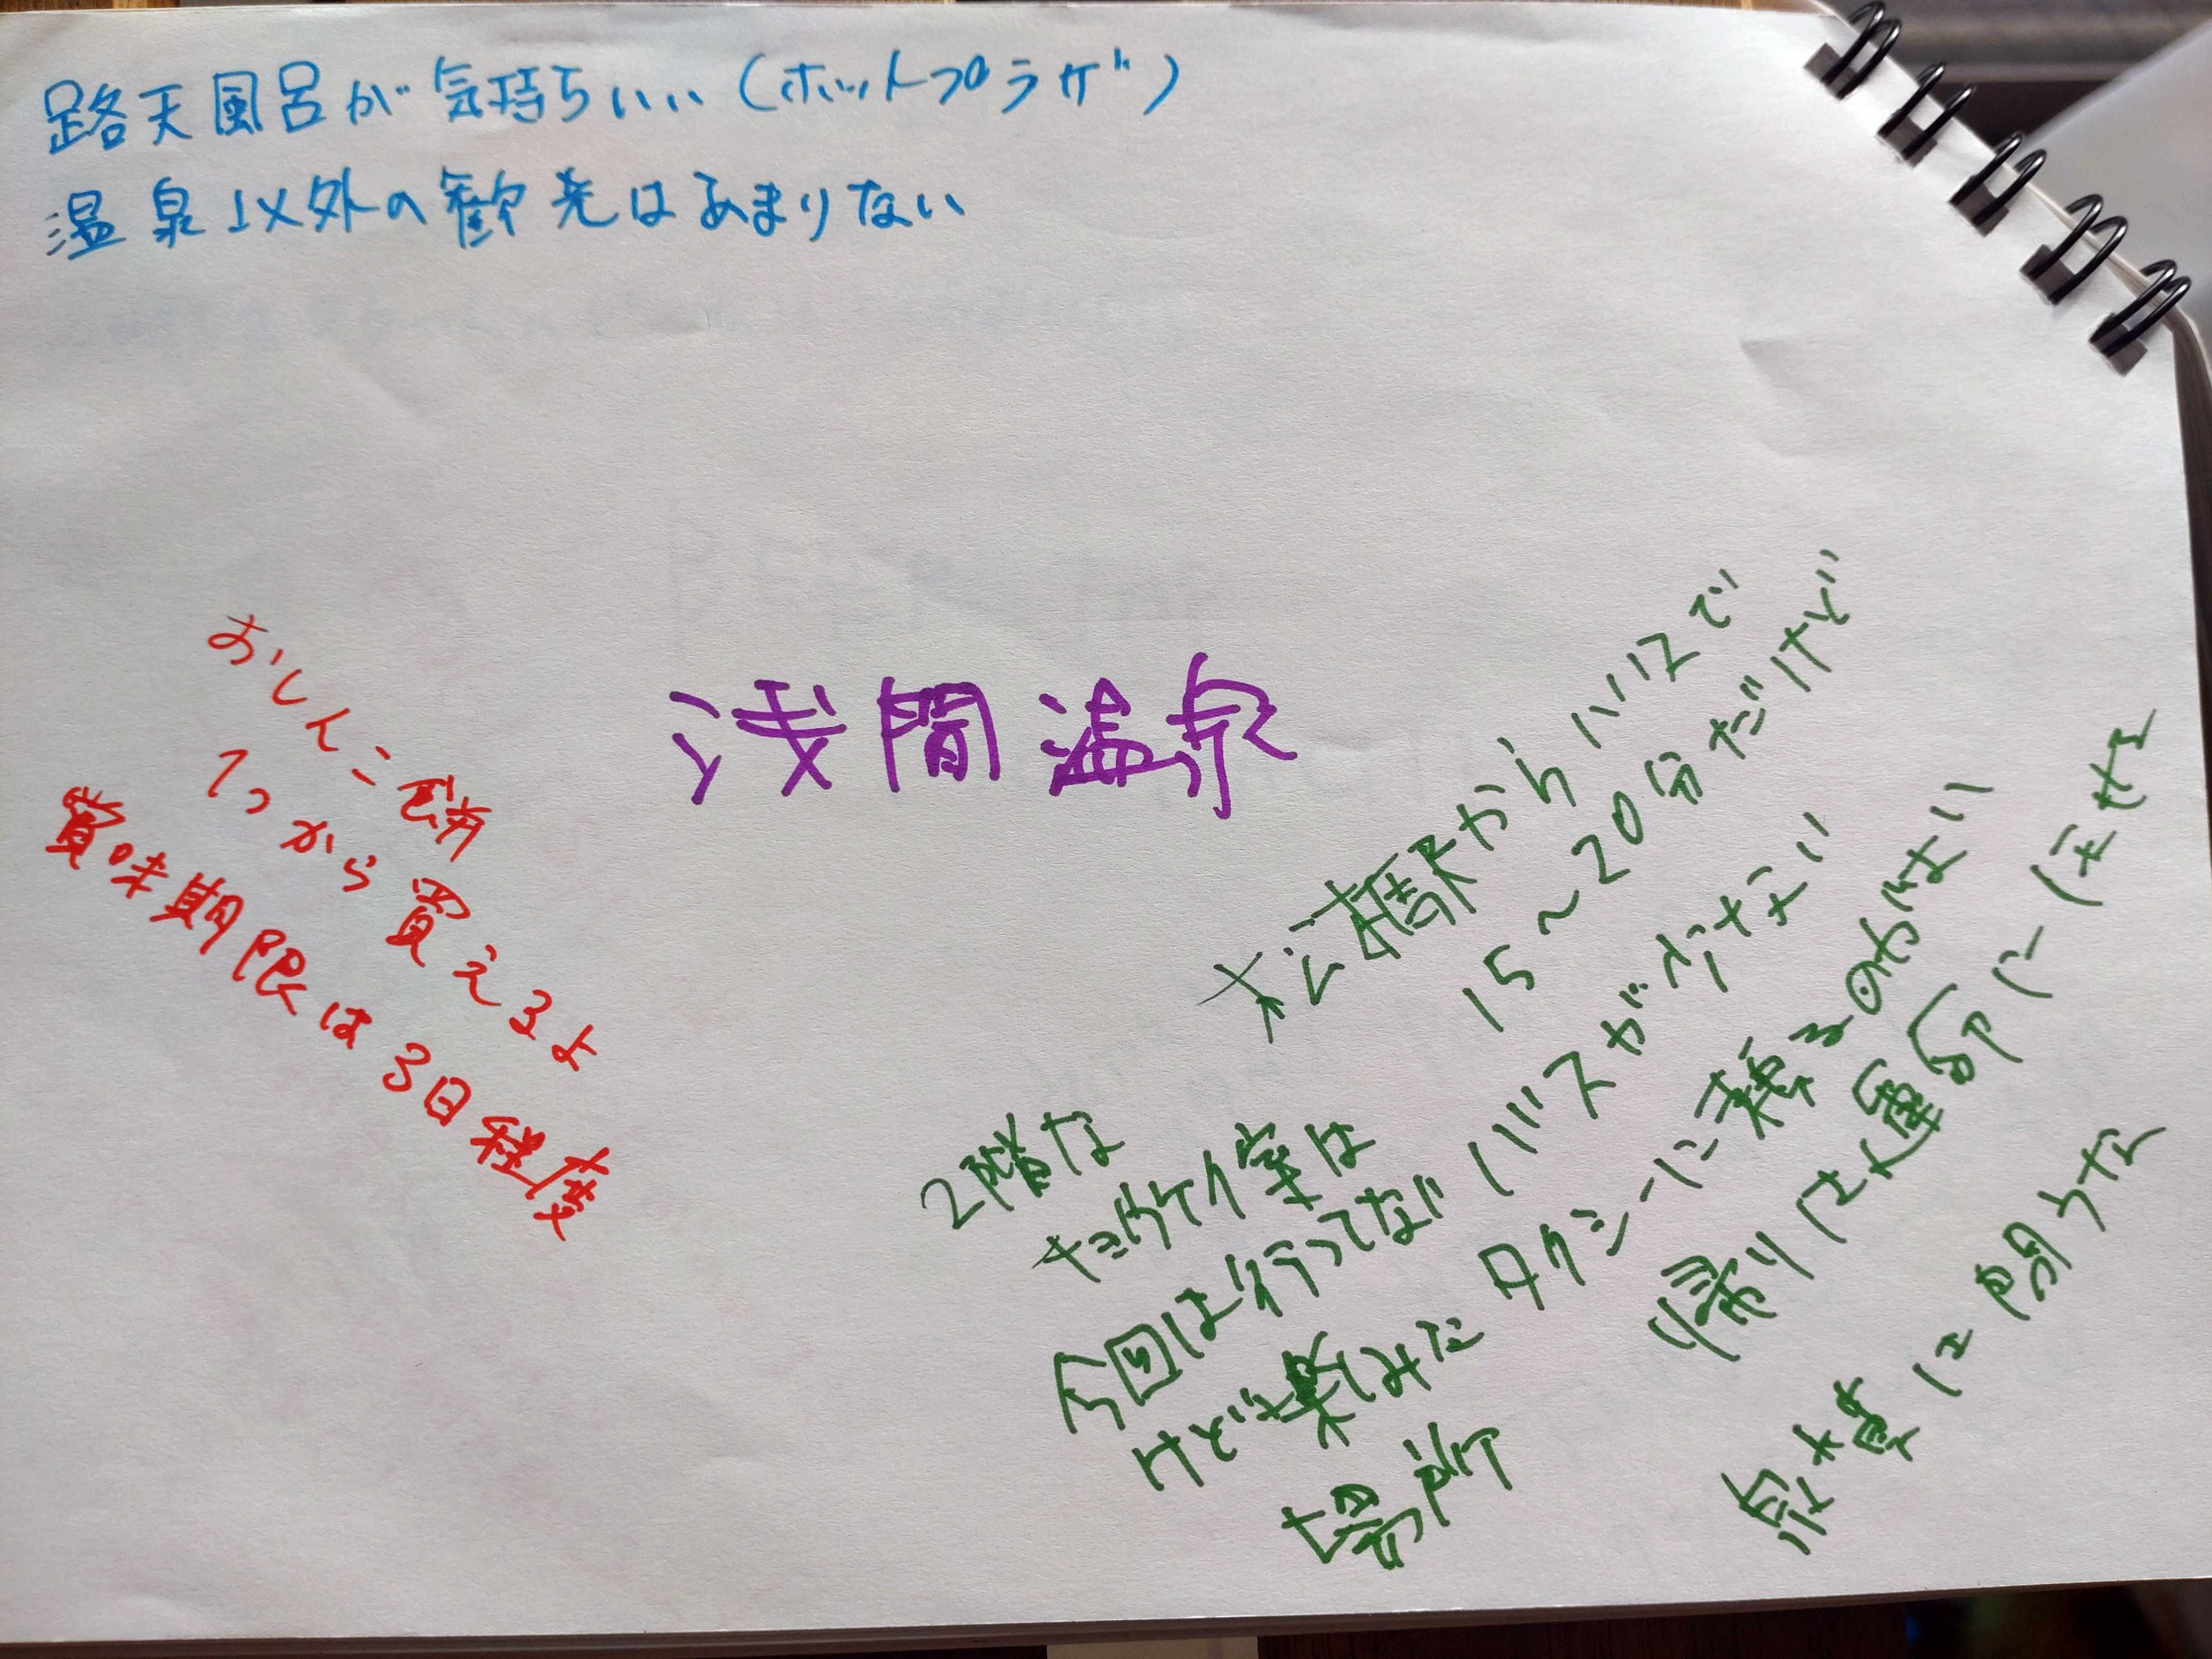 路天風呂が気持ちいい(ホットプラザ)
温泉以外の歓光はあまりない
浅間温泉
おしんこ餅
1つから買えるよ
賞味期限は3日程度
松本駅からバスで
15～20分だけど
バスが少ない
タクシーに乗るのがはい
帰りは
に任せる
は聞クな
2階な
は
今回は行ってない
けど楽しみな
場所